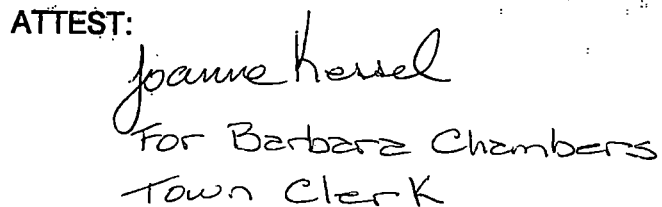 ATTEST:
Joanne Kessel
For Barbara Chambers
Town Clerk